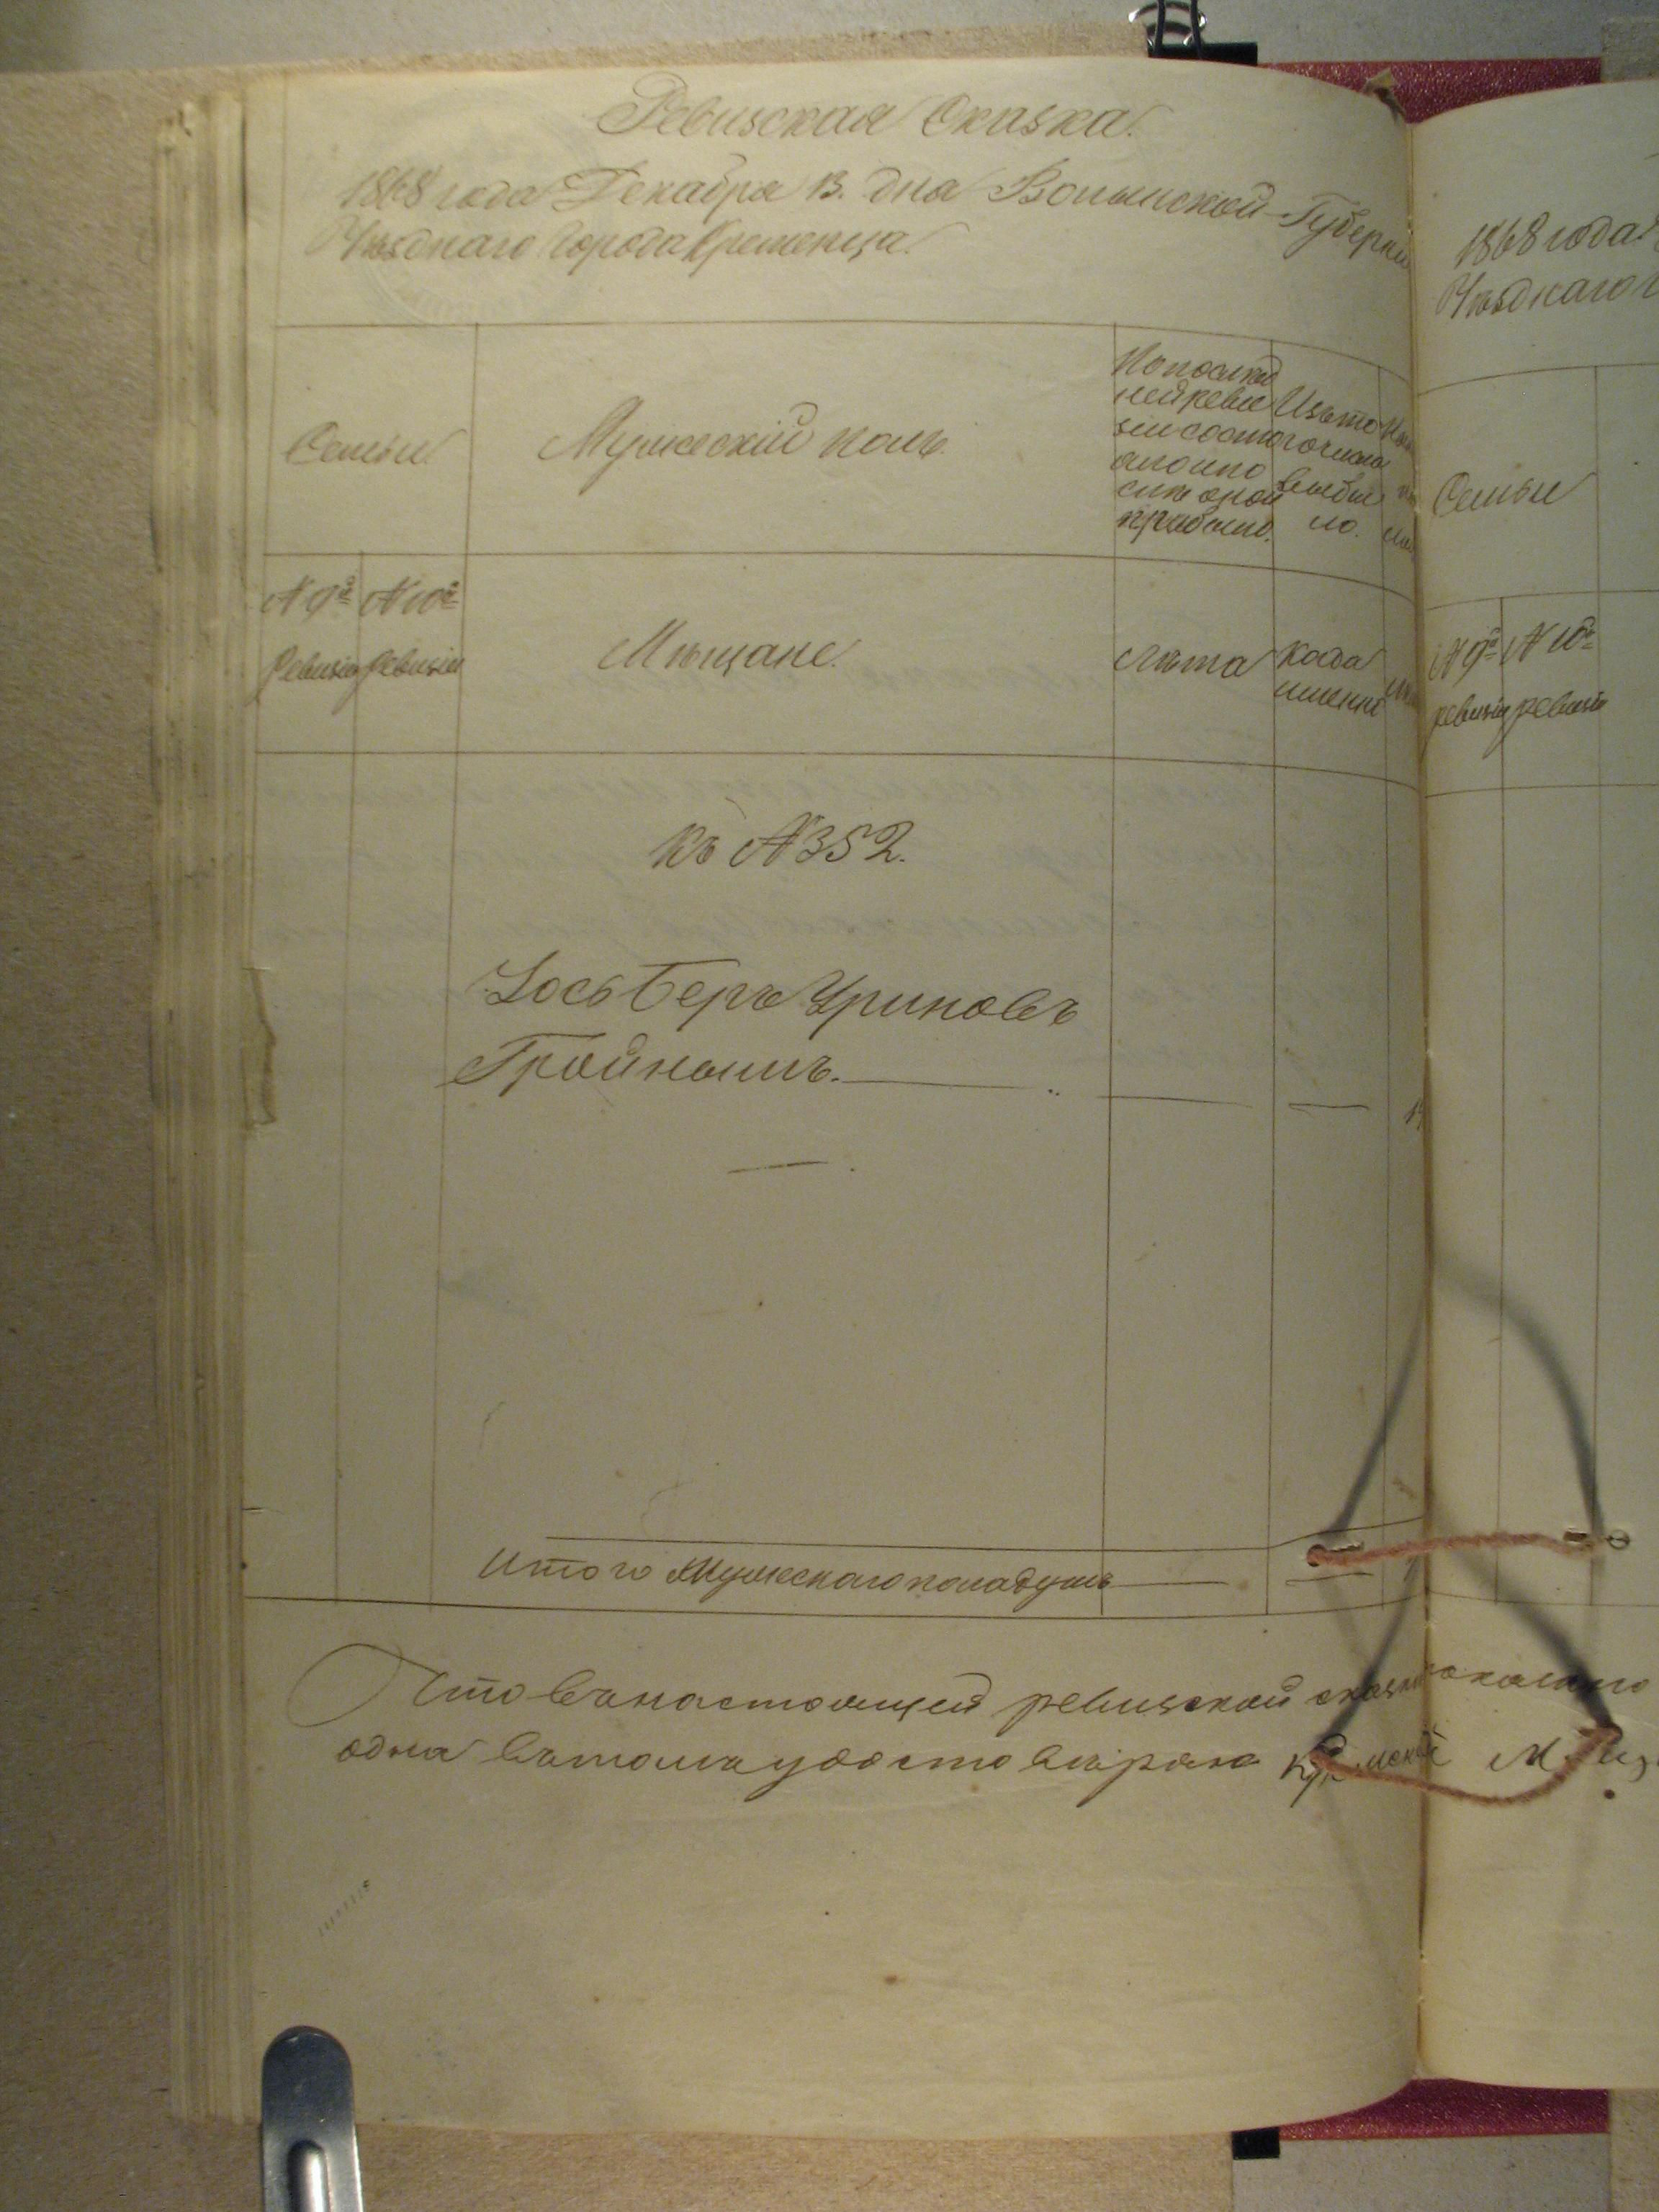 Ревизская Сказка.
1868 года Декабря 13. дня Волынской Губерніи
Уѣзднаго города Кременца.
Семьи.
Мужескій полъ.
По послѣд
ней реви
зіи состо
яло и по
слѣ оной
прибыло.
Изъ то
го числа
выбы
ло.
№ 9й
Ревизіи
№ 10й
Ревизіи
Мѣщане.
Лѣта
когда
именно
Къ № 352.
Іось Беръ Уриновъ
Гройнымъ.
Итого Мужескаго пола душъ
Что въ настоящей ревизской сказкѣ показано
одна въ томъ удостовѣряю
1868 года
Уѣзднаго г
Семьи
№ 9й
ревизіи
№ 10й
ревизіи